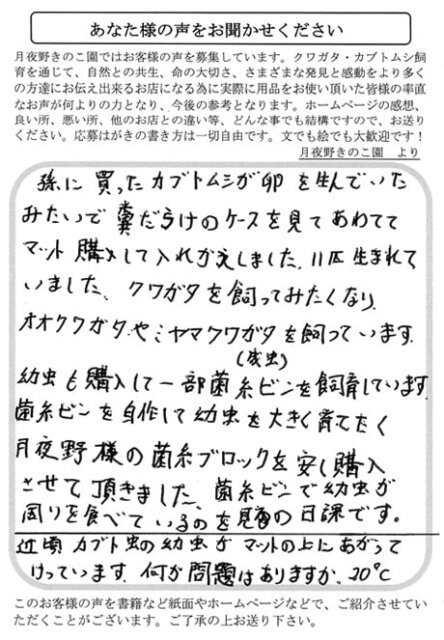 あなた様の声をお聞かせください
月夜野きのこ園ではお客様の声を募集しています。クワガタ・カブトムシ飼
育を通じて、自然との共生、命の大切さ、さまざまな発見と感動をより多く
の方達にお伝え出来るお店になる為に実際に用品をお使い頂いた皆様の率直
なお声が何よりの力となり、今後の参考となります。ホームページの感想、
良い所、悪い所、他のお店との違い等、どんな事でも結構ですので、お送り
ください。応募はがきの書き方は一切自由です。文でも絵でも大歓迎です！
月夜野きのこ園　より
孫に買ったカブトムシが卵を生んでいた
みたいで糞だらけのケースを見てあわてて
マット購入して入れかえしました。11匹生まれて
いました。クワガタを飼ってみたくなり、
オオクワガタやミヤマクワガタを飼っています。
(成虫)
幼虫も購入して一部菌糸ビンを飼育しています。
菌糸ビンを自作して幼虫を大きく育てたく
月夜野様の菌糸ブロックを安く購入
させて頂きました。菌糸ビンで幼虫が
周りを食べているのを見るの日課です。
近頃カブト虫の幼虫がマットの上にあがって
けっています。何か問題はありますか。20℃
このお客様の声を書籍など紙面やホームページなどで、ご紹介させてい
ただくことがございます。ご了承の上お送り下さい。